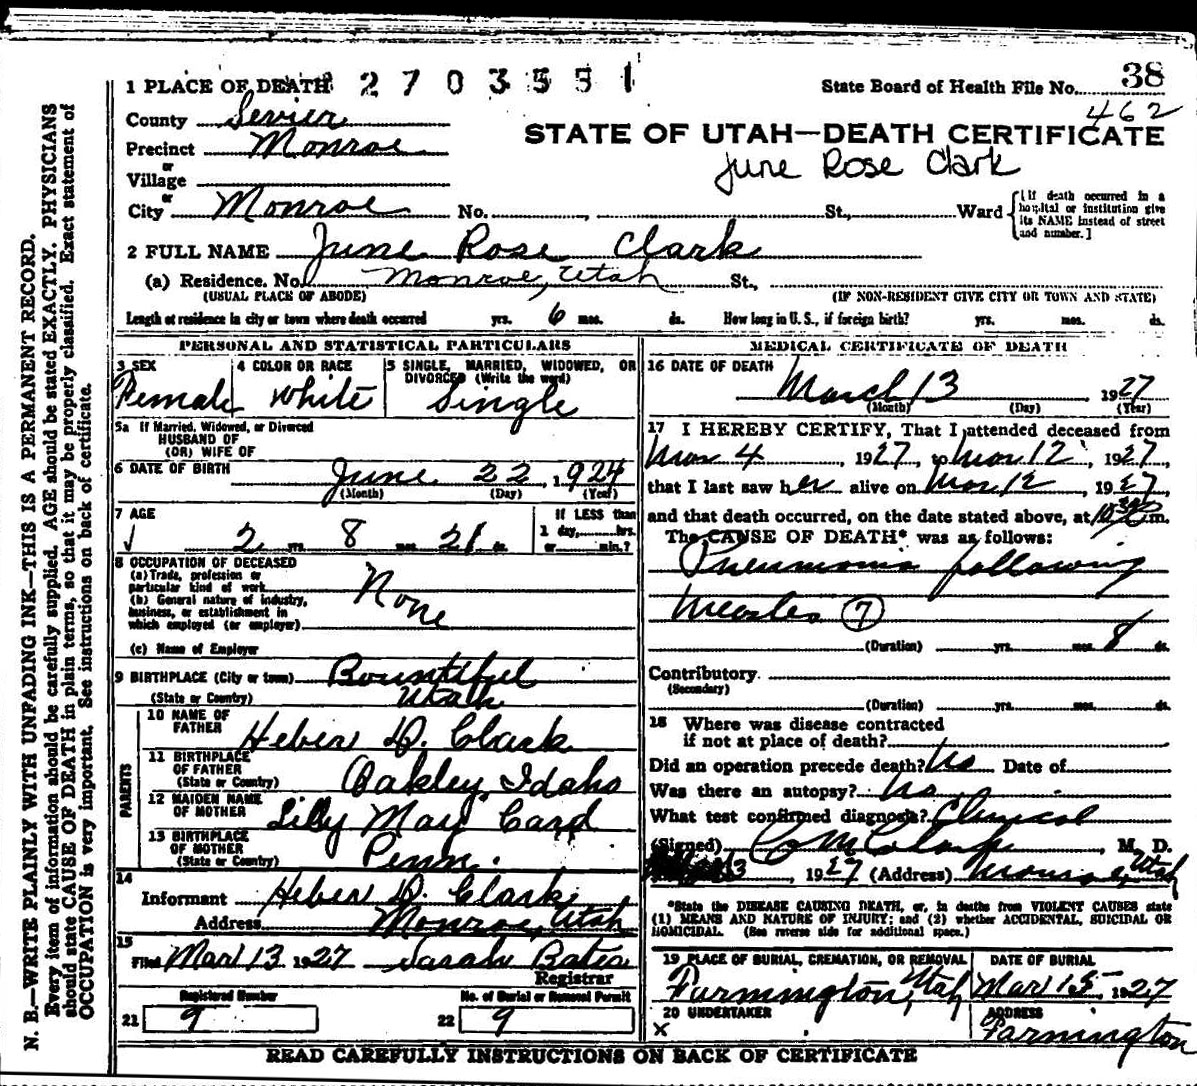 1 PLACE OF DEATH 2703551 State Board of Health File No. 38
462
County Sevier
STATE OF UTAH—DEATH CERTIFICATE
Precinct Monroe
June Rose Clark
or
Village
or
City Monroe No. , St., Ward
[If death occurred in a hospital or institution give its NAME instead of street and number.]
2 FULL NAME June Rose Clark
(a) Residence. No. Monroe, Utah St.,
(USUAL PLACE OF ABODE) (IF NON-RESIDENT GIVE CITY OR TOWN AND STATE)
Length of residence in city or town where death occurred yrs. 6 mos. ds. How long in U. S., if foreign birth? yrs. mos. ds.
PERSONAL AND STATISTICAL PARTICULARS
3 SEX 4 COLOR OR RACE 5 SINGLE, MARRIED, WIDOWED, OR
DIVORCED (Write the word)
Female White Single
5a If Married, Widowed, or Divorced
HUSBAND OF
(OR) WIFE OF
6 DATE OF BIRTH June 22, 1924
(Month) (Day) (Year)
7 AGE If LESS than
1 day, hrs.
2 yrs. 8 mos. 21 ds. or min.?
8 OCCUPATION OF DECEASED
(a) Trade, profession or
particular kind of work
(b) General nature of industry,
business, or establishment in
which employed (or employer)
None
(c) Name of Employer
9 BIRTHPLACE (City or town) Bountiful
(State or Country) Utah
PARENTS
10 NAME OF
FATHER Heber D. Clark
11 BIRTHPLACE
OF FATHER
(State or Country) Oakley, Idaho
12 MAIDEN NAME
OF MOTHER Lilly May Card
13 BIRTHPLACE
OF MOTHER
(State or Country) Penn.
14
Informant Heber D. Clark
Address Monroe, Utah
15
Filed Mar 13 1927 Sarah Bates
Registrar
Registered Number No. of Burial or Removal Permit
21 9 22 9
MEDICAL CERTIFICATE OF DEATH
16 DATE OF DEATH
March 13 1927
(Month) (Day) (Year)
17 I HEREBY CERTIFY, That I attended deceased from
Mar 4, 1927, to Mar 12, 1927,
that I last saw her alive on Mar 12, 1927,
and that death occurred, on the date stated above, at 10 30 m.
The CAUSE OF DEATH* was as follows:
Pneumonia following
Measles 7
(Duration) yrs. mos. 8 ds.
Contributory
(Secondary)
(Duration) yrs. mos. ds.
18 Where was disease contracted
if not at place of death?
Did an operation precede death? No Date of
Was there an autopsy? No
What test confirmed diagnosis? Clinical
(Signed) M. D.
13, 1927 (Address) Monroe, Utah
*State the DISEASE CAUSING DEATH, or, in deaths from VIOLENT CAUSES state
(1) MEANS AND NATURE OF INJURY; and (2) whether ACCIDENTAL, SUICIDAL OR
HOMICIDAL. (See reverse side for additional space.)
19 PLACE OF BURIAL, CREMATION, OR REMOVAL DATE OF BURIAL
Farmington, Utah Mar 15, 1927
20 UNDERTAKER ADDRESS
x Farmington
READ CAREFULLY INSTRUCTIONS ON BACK OF CERTIFICATE
N. B.—WRITE PLAINLY WITH UNFADING INK—THIS IS A PERMANENT RECORD.
Every item of information should be carefully supplied. AGE should be stated EXACTLY. PHYSICIANS
should state CAUSE OF DEATH in plain terms, so that it may be properly classified. Exact statement of
OCCUPATION is very important. See instructions on back of certificate.